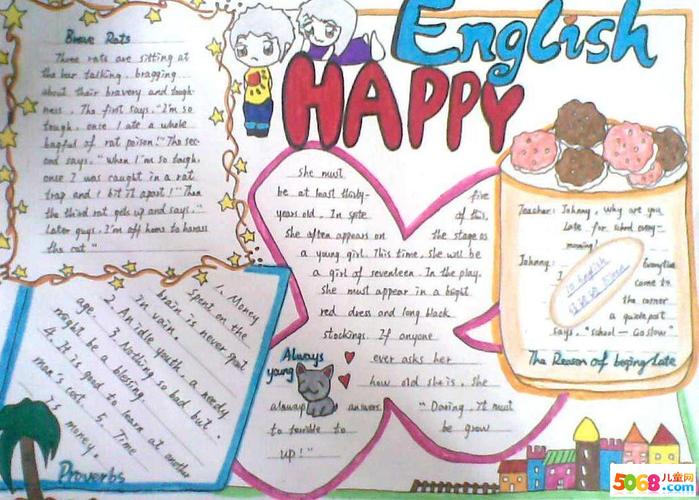 English
HAPPY
Brave Rats
Three rats are sitting at
the bar talking, bragging
about their bravery and tough-
ness. The first says, "I'm so
tough, once I ate a whole
bagful of rat poison!" The sec-
ond says, "When I'm so tough,
once I was caught in a rat
trap and I bit it apart!" Then
the third rat gets up and says, "
Later guys, I'm off home to harass
the cat."
1. Money
spent on the
brain is never
in vain.
2. An idle youth, a needy
age. 3. Nothing so bad but
might be a blessing.
4. It is good to learn at another
man's cost. 5. Time
is money.
Proverbs
she must
be at least thirty-five
years old. In spite of this,
she often appears on the stage as
a young girl. This time, she will be
a girl of seventeen. In the play,
she must appear in a bright
red dress and long black
stockings. If anyone
ever asks her
how old she is, she
always answers
"Daring, it must
be terrible to be grow
up!"
Always
young
Teacher: Johnny, why are you
late for school every
morning?
Johnny: Everytime
I come to
the corner
a guidepost
says, "School — Go slow"
In English
The Reason of being late
5068儿童网
.com